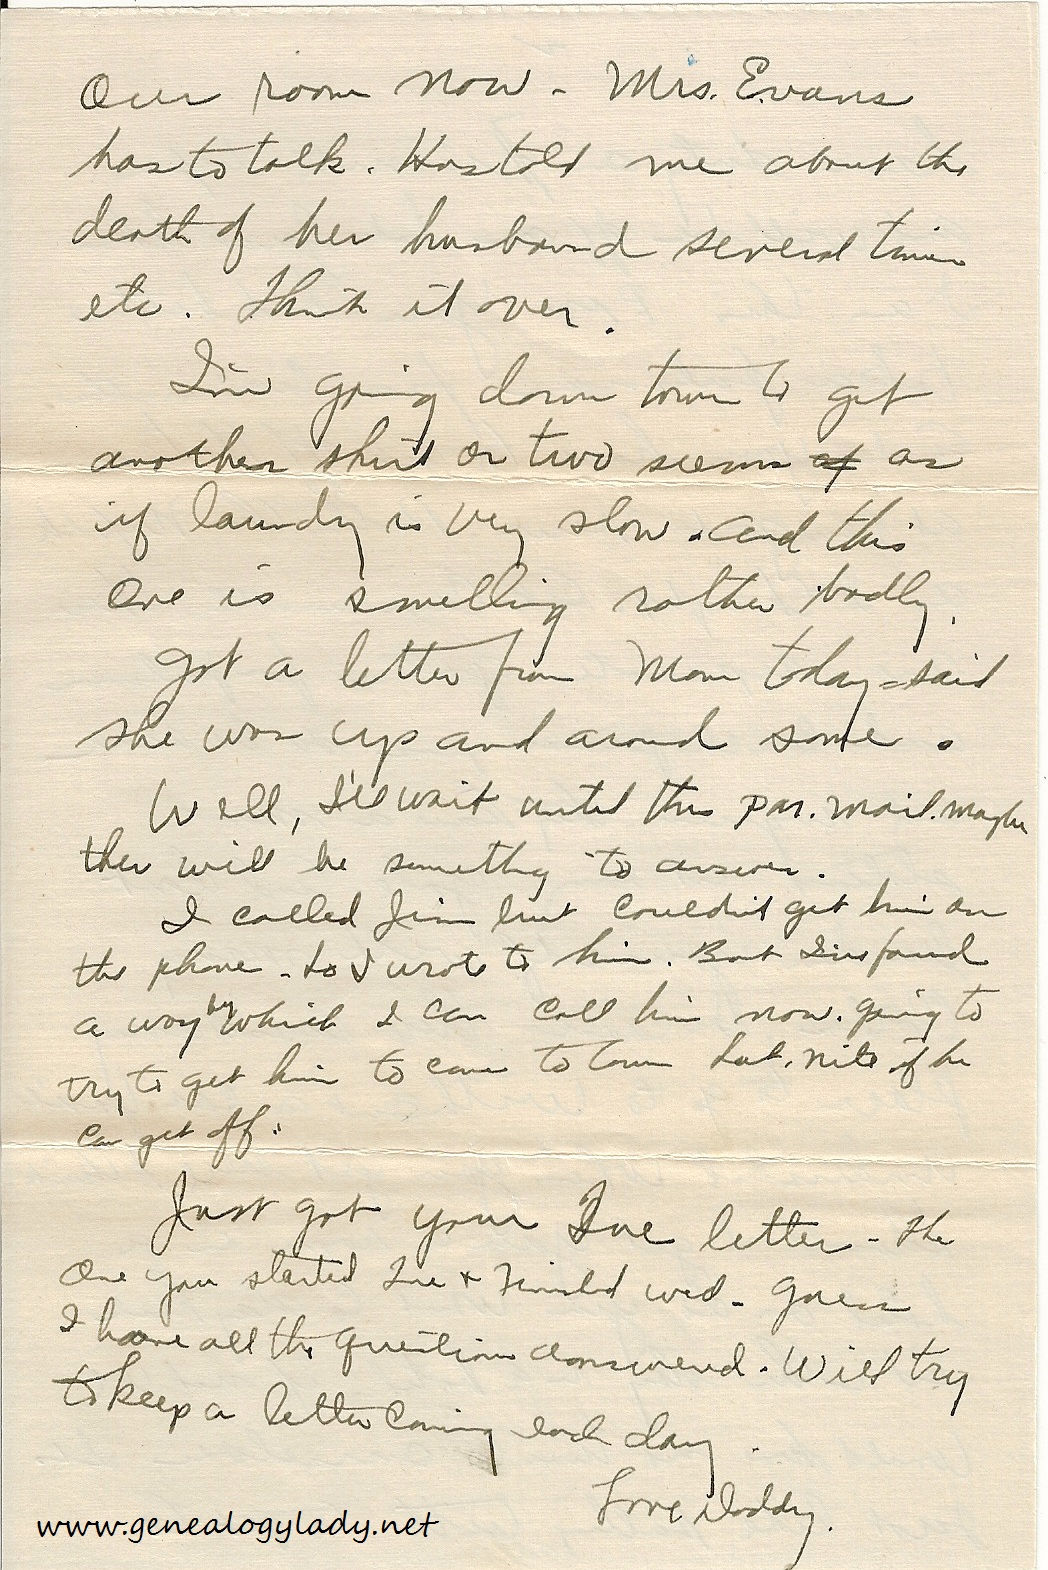 Our room now - Mrs. Evans
has to talk. Has told me about the
death of her husband several times
etc. Think it over.
I'm going down town to get
another shirt or two seems of as
if laundry is very slow. and this
one is smelling rather badly.
Got a letter from Mom today - said
she was up and around some.
Well, I'll wait until the p.m. mail. maybe
ther will be somethg to answer.
I called Jim but couldn't get him on
the phone - So I wrote to him. But I've found
a way by which I can call him now. going to
try to get him to come to town Sat. nite if he
can get off.
Just got your Tue letter - the
one you started Tue + finished wed - guess
I have all the questions answered. Will try
to keep a letter coming each day.
Love Daddy.
www.genealogylady.net